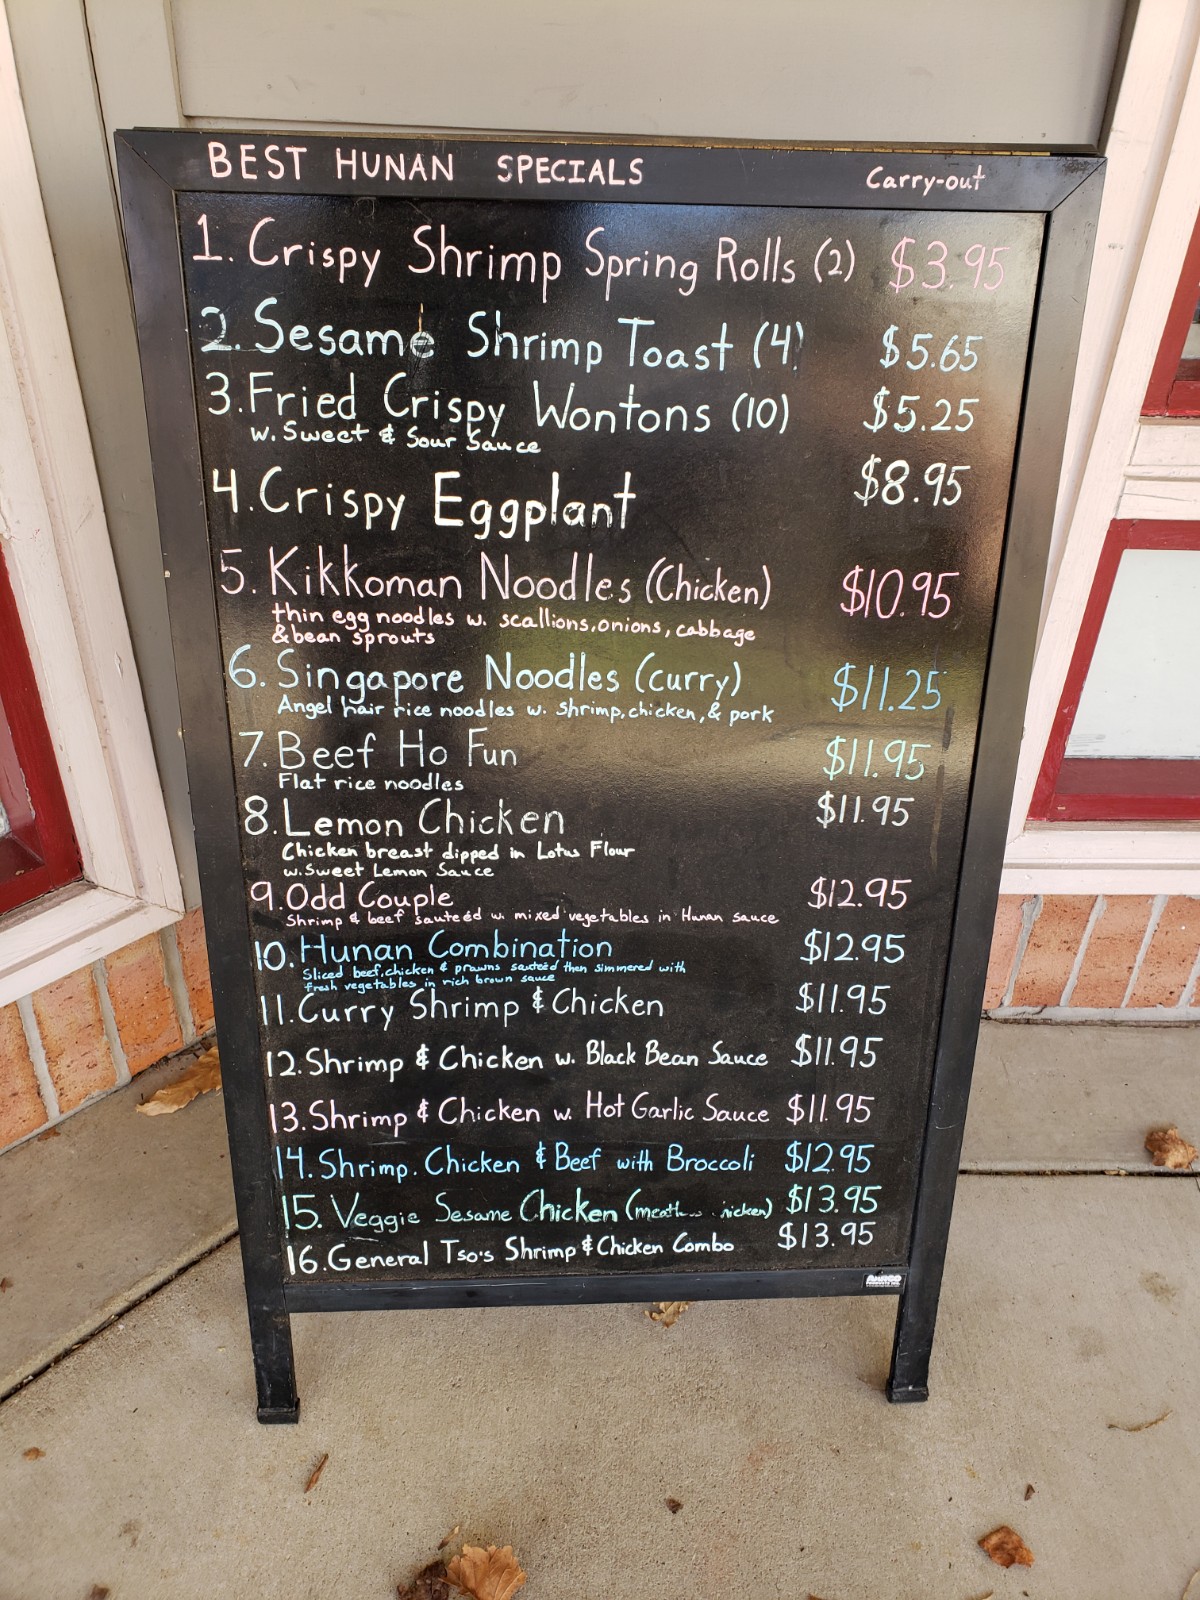 BEST HUNAN SPECIALS Carry-out
1. Crispy Shrimp Spring Rolls (2) $3.95
2. Sesame Shrimp Toast (4) $5.65
3. Fried Crispy Wontons (10) $5.25
w. Sweet & Sour Sauce
4. Crispy Eggplant $8.95
5. Kikkoman Noodles (Chicken) $10.95
thin egg noodles w. scallions, onions, cabbage
& bean sprouts
6. Singapore Noodles (curry) $11.25
Angel hair rice noodles w. shrimp, chicken, & pork
7. Beef Ho Fun $11.95
Flat rice noodles
8. Lemon Chicken $11.95
Chicken breast dipped in Lotus Flour
w. Sweet Lemon Sauce
9. Odd Couple $12.95
Shrimp & beef sauteéd w. mixed vegetables in Hunan sauce
10. Hunan Combination $12.95
Sliced beef, chicken & prawns sauteéd then simmered with
fresh vegetables in rich brown sauce
11. Curry Shrimp & Chicken $11.95
12. Shrimp & Chicken w. Black Bean Sauce $11.95
13. Shrimp & Chicken w. Hot Garlic Sauce $11.95
14. Shrimp. Chicken & Beef with Broccoli $12.95
15. Veggie Sesame Chicken $13.95
16. General Tso's Shrimp & Chicken Combo $13.95